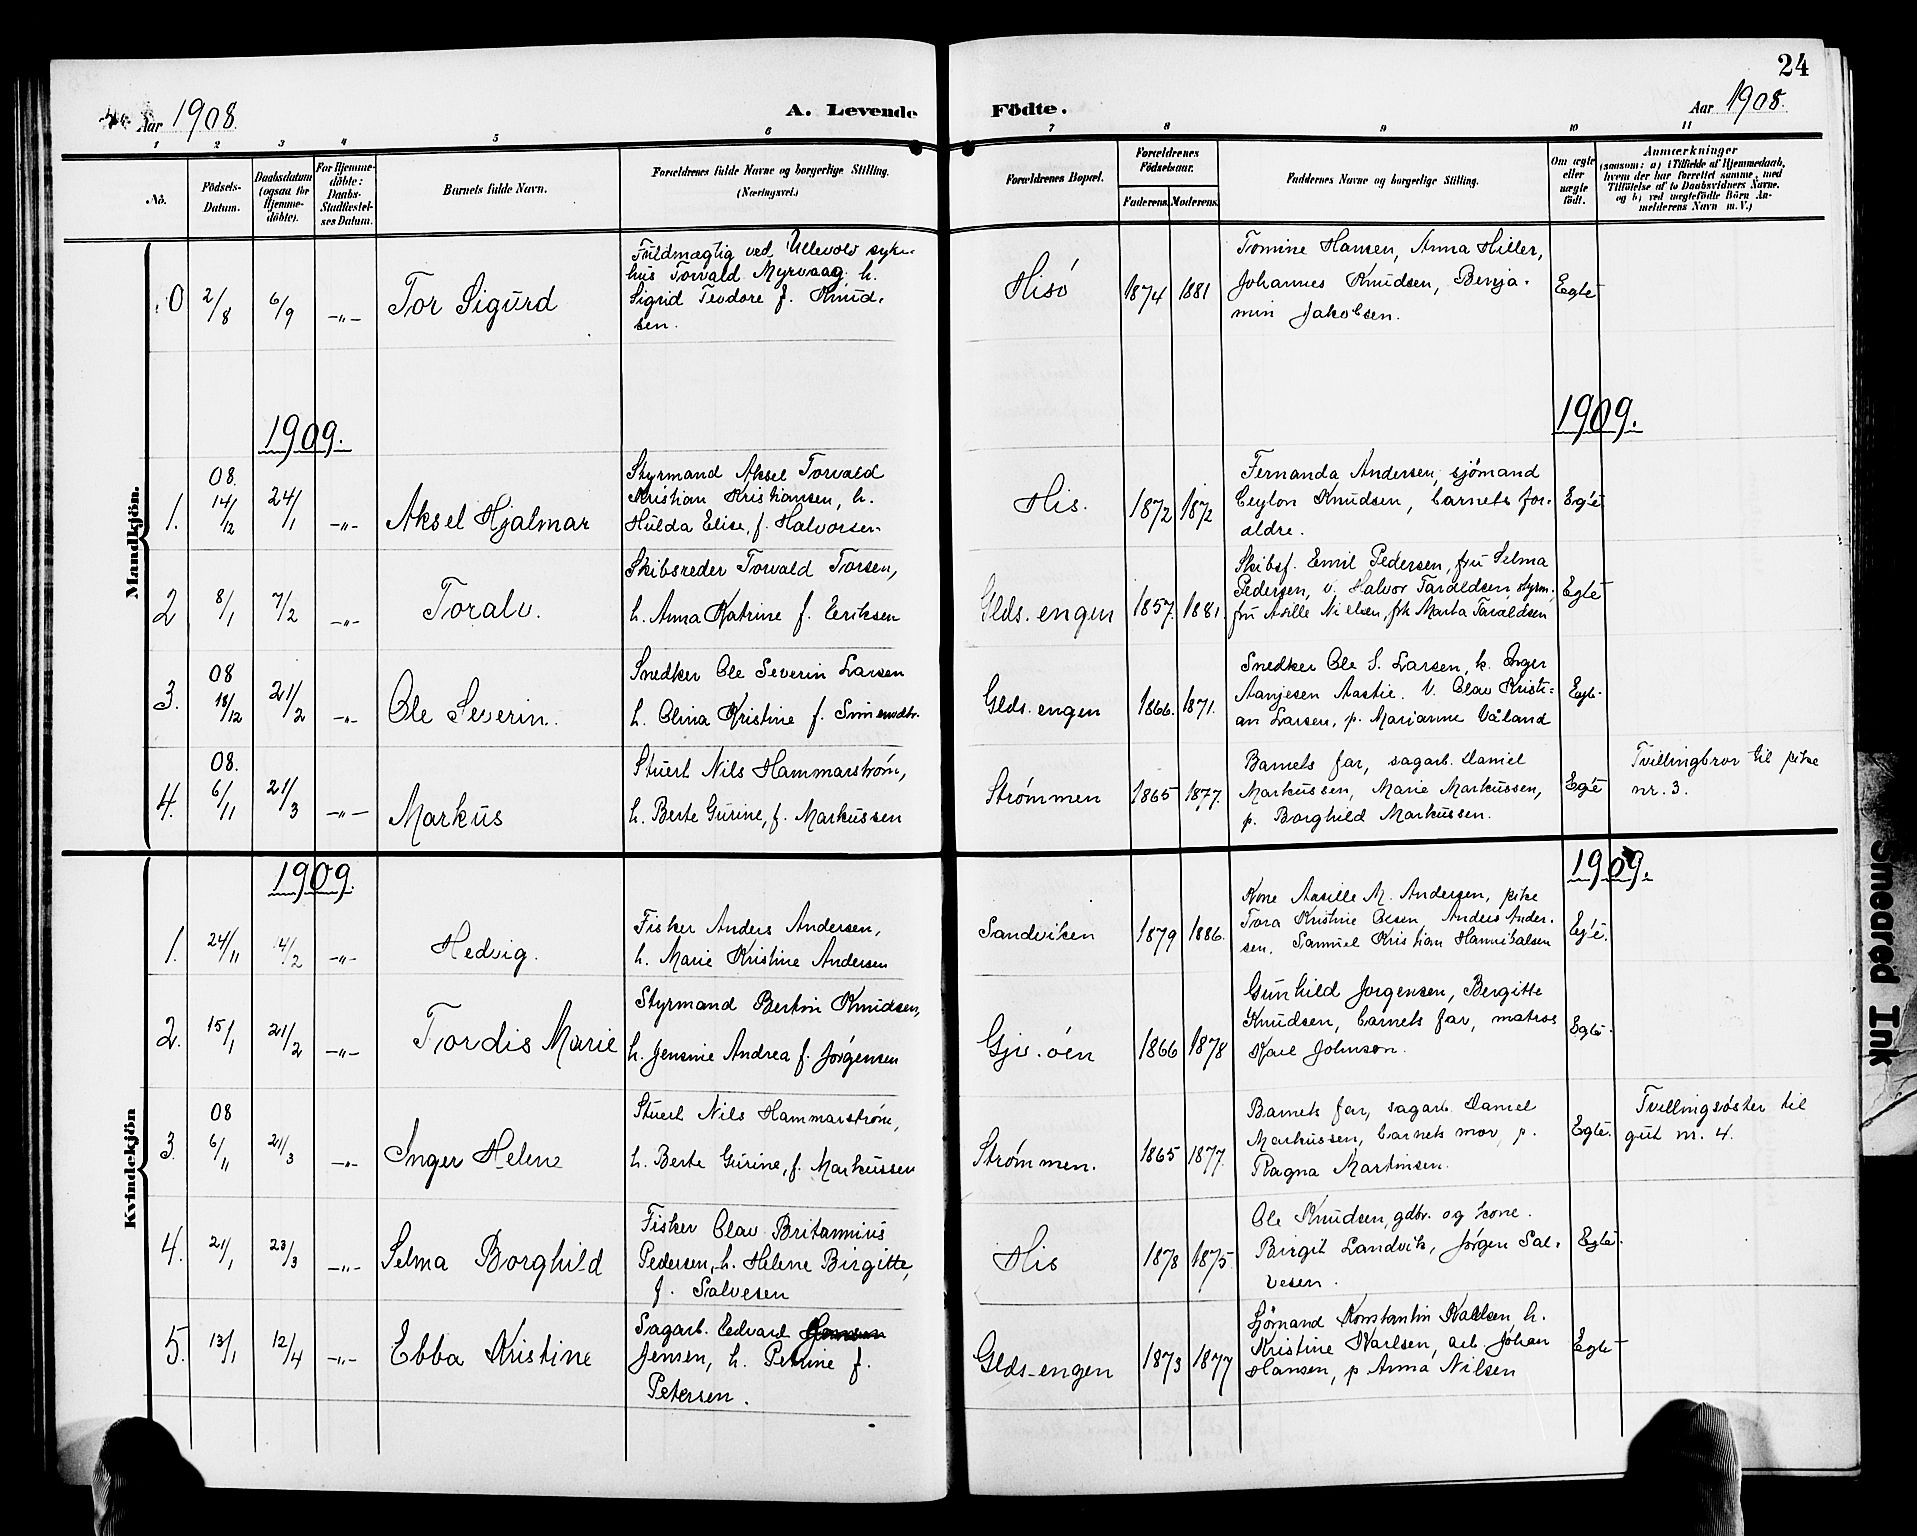 24
Aar 1908.
A. Levende Födte.
Aar 1908.
1 2 3 4 5 6 7 8 9 10 11
No.
Födsels-Datum.
Daabsdatum (ogsaa for Hjemme-döbte).
For Hjemme-döbte: Daabs-Stadfæstel-ses Datum.
Barnets fulde Navn.
Forældrenes fulde Navne og borgerlige Stilling. (Næringsvei.)
Forældrenes Bopæl.
Forældrenes Födselsaar.
Faderens. Moderens.
Faddernes Navne og borgerlige Stilling.
Om ægte eller uægte födt.
Anmærkninger
(saasom: a) i Tilfælde af Hjemmedaab,
hvem der har forrettet samme, med
Tilföielse af to Daabsvidners Navne,
og b) ved uægtefödte Börn An-
melderens Navn m. V.)
Mandkjön.
0 2/8 6/9 -"- Tor Sigurd
Fuldmægtig ved Ullevold syke-
hus Torvald Myrvaag h.
Sigrid Teodore f. Knud-
sen.
Hisö 1874 1881
Tomine Hansen, Anna Hiller,
Johannes Knudsen, Benja-
min Jakobsen.
Egte
1909. 1909.
1. 08. 14/12 24/1 -"- Aksel Hjalmar
Styrmand Aksel Torvald
Kristian Kristiansen, h.
Hulda Elise, f. Halvorsen
His. 1872 1872
Fernanda Andersen, sjömand
Ceylon Knudsen, barnets for-
ældre.
Egte
2 8/1 7/2 -"- Toralv.
Skibsreder Torvald Torsen,
h. Anna Katrine f. Eeriksen
Glds. engen 1857. 1881.
Skibsf. Emil Pedersen, fru Selma
Pedersen, v. Halvor Taraldsen styrm.,
fru Asille Nielsen, frk Marta Taraldsen
Egte
3. 08 18/12 21/2 -"- Ole Severin.
Snedker Ole Severin Larsen
h. Olina Kristine f.
Glds. engen 1866. 1871.
Snedker Ole S. Larsen, k. Inger
Aanjesen Aastie. V. Olav Kristi-
an Larsen, p. Marianne Våland
Egte.
4. 08. 6/11 21/3 -"- Markus
Stuert Nils Hammarstrøm,
h. Berte Gurine, f. Markussen
Strømmen 1865 1877.
Barnets far, sagarb. Daniel
Markussen, Marie Markussen,
p. Borghild Markussen.
Egte
Tvillingbror til pike
nr. 3.
Kvindekjön
1909. 1909.
1. 24/11 14/2 -"- Hedvig.
Fisker Anders Andersen,
h. Marie Kristine Andersen
Sandviken 1879 1886.
Kone Aasille M. Andersen, pike
Tora Kristine Olsen, Anders Ander-
sen. Samuel Kristian Hannibalsen
Egte.
2. 15/1 21/2 -"- Tordis Marie
Styrmand Bertin Knudsen,
h. Jensine Andrea f. Jørgensen
Gjv. øen 1866 1878
Gunhild Jorgensen, Bergitte
Knudsen, barnets far, matros
Karl Johnson.
Egte.
3. 08 6/11 21/3 -"- Inger Helene
Stuert Nils Hammarstrøm,
h. Berte Gurine, f. Markussen
Strømmen. 1865 1877.
Barnets far, sagarb. Daniel
Markussen, barnets mor, p.
Ragna Martinsen.
Egte.
Tvillingsøster til
gut nr. 4.
4. 21/1 23/3 -"- Selma Borghild
Fisker Olav Britannius
Pedersen, h. Helene Birgitte,
f. Salvesen
His 1878 1875.
Ole Knudsen, gdbr. og kone.
Birgit Landvik, Jørgen Sal-
vesen.
Egte.
5. 13/1 12/4 -"- Ebba Kristine
Sagarb. Edvard
Jensen, h. Petrine f.
Petersen.
Glds-engen 1873 1877
Sjömand Konstantin Karlsen, h.
Kristine Karlsen, arb. Johan
Hansen, p Anna Nilsen
Egte
Smeared Ink